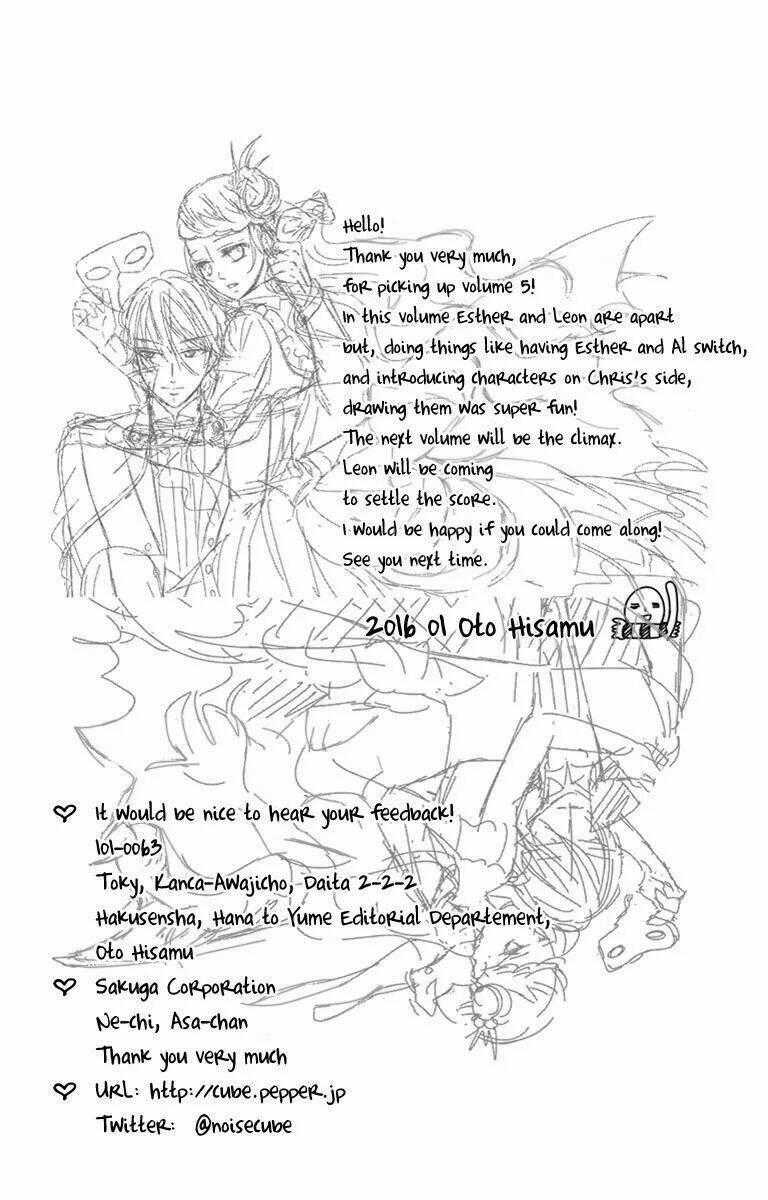 Hello!
Thank you very much,
for picking up volume 5!
In this volume Esther and Leon are apart
but, doing things like having Esther and Al switch,
and introducing characters on Chris's side,
drawing them was super fun!
The next volume will be the climax.
Leon will be coming
to settle the score.
I would be happy if you could come along!
See you next time.
2016 01 Oto Hisamu
♡ It would be nice to hear your feedback!
101-0063
Toky, Kanca-Awajicho, Daita 2-2-2
Hakusensha, Hana to Yume Editorial Departement,
Oto Hisamu
♡ Sakuga Corporation
Ne-chi, Asa-chan
Thank you very much
♡ URL: http://cube.pepper.jp
Twitter: @noisecube